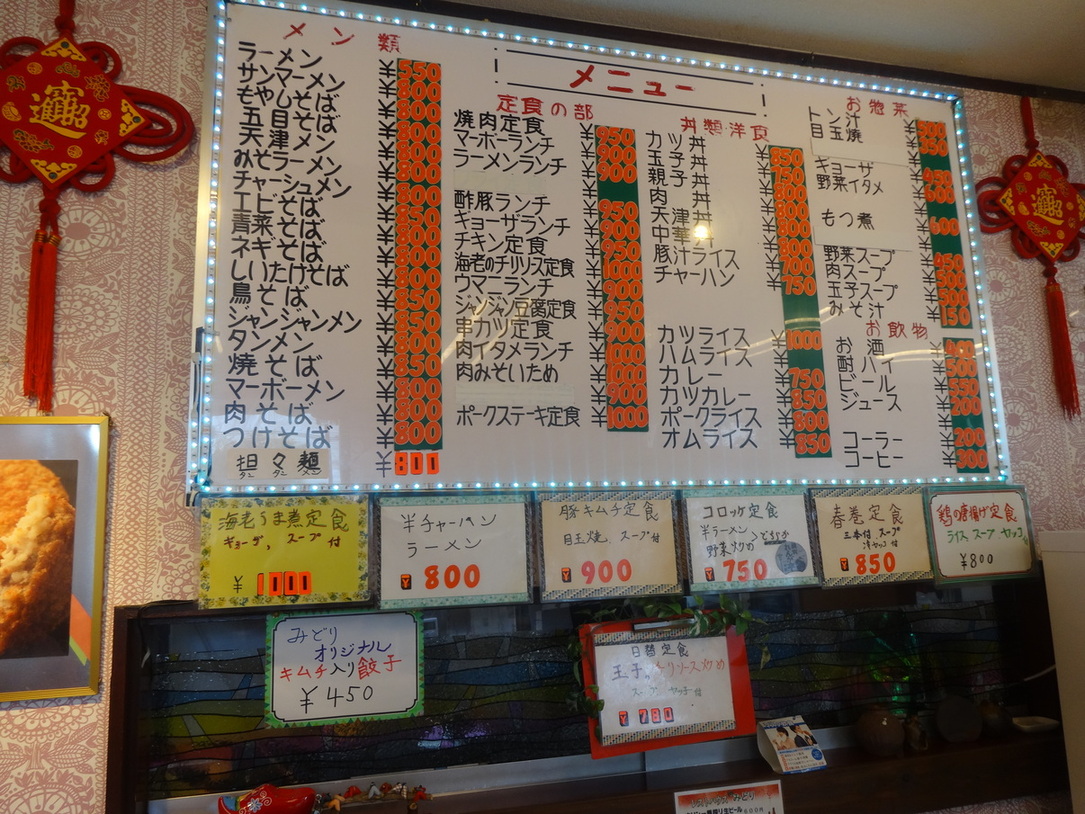 メニュー
メン類
ラーメン ¥550
サンマーメン ¥800
もやしそば ¥800
五目そば ¥800
天津メン ¥800
みそラーメン ¥800
チャーシュメン ¥800
エビそば ¥850
青菜そば ¥800
ネギそば ¥800
しいたけそば ¥800
鳥そば ¥850
ジャンジャンメン ¥850
タンメン ¥800
焼そば ¥850
マーボーメン ¥800
肉そば ¥800
つけそば ¥800
担々麺 ¥800
タンタンメン
定食の部
焼肉定食 ¥950
マーボーランチ ¥900
ラーメンランチ ¥900
酢豚ランチ ¥950
ギョーザランチ ¥900
チキン定食 ¥950
海老のチリソース定食 ¥1000
ウマニーランチ ¥900
ジャンジャン豆腐定食 ¥950
串カツ定食 ¥900
肉イタメランチ ¥1000
肉みそいため ¥900
ポークステーキ定食 ¥1000
丼類洋食
カツ丼 ¥850
玉子丼 ¥750
親子丼 ¥800
肉丼 ¥800
天津丼 ¥800
中華丼 ¥800
豚汁ライス ¥700
チャーハン ¥750
カツライス ¥1000
ハムライス
カレー ¥750
カツカレー ¥850
ポークライス ¥800
オムライス ¥850
お惣菜
トン汁
目玉焼 ¥350
ギョーザ ¥450
野菜イタメ ¥600
もつ煮 ¥600
野菜スープ
肉スープ ¥500
玉子スープ
みそ汁 ¥150
お飲物
お酒
酎ハイ ¥500
ビール ¥550
ジュース ¥200
コーラー ¥200
コーヒー ¥300
海老うま煮定食
ギョーザ、スープ付
¥1000
半チャーハン
ラーメン
¥800
豚キムチ定食
目玉焼、スープ付
¥900
コロッケ定食
半ラーメン
野菜炒め
どちらか
¥750
春巻定食
三本付、スープ
冷ヤッコ付
¥850
鶏の唐揚げ定食
ライス スープ ヤッコ付
¥800
みどり
オリジナル
キムチ入り餃子
¥450
日替定食
玉子のチリソース炒め
スープ、ヤッコ付
¥780